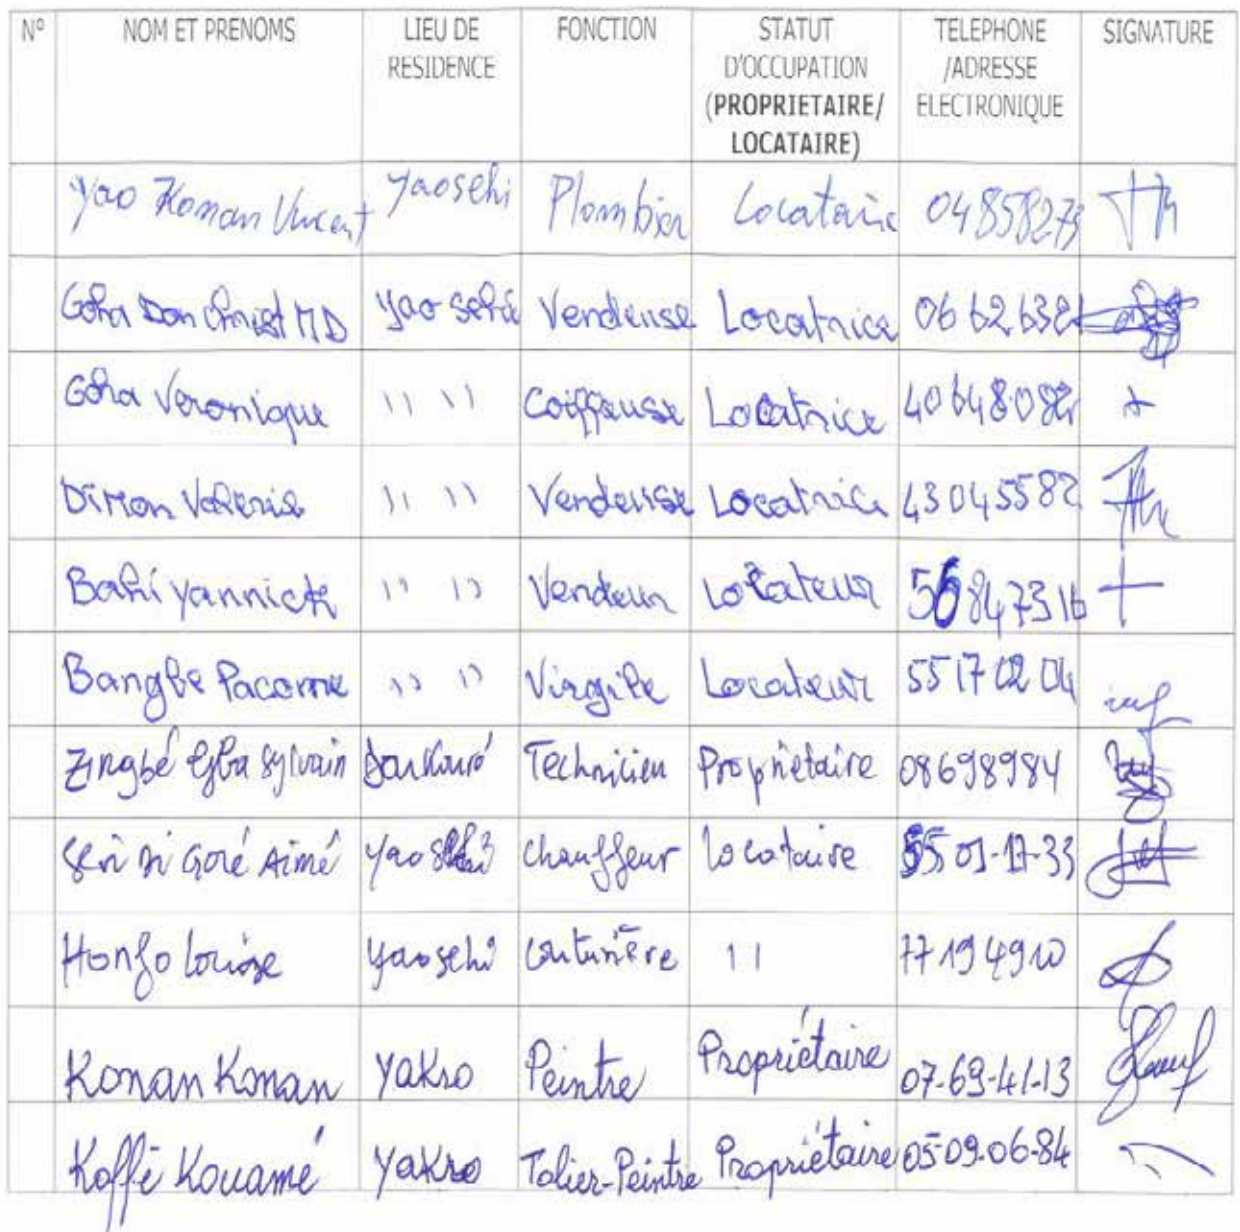 N° NOM ET PRENOMS LIEU DE RESIDENCE FONCTION STATUT D'OCCUPATION (PROPRIETAIRE/ LOCATAIRE) TELEPHONE /ADRESSE ELECTRONIQUE SIGNATURE
Yao Konan Vincent Yaosehi Plombier Locataire 04858273
Goha Yao sehi Vendeuse Locatrice 06 62 638
Goha Veronique " " Coiffeuse Locatrice 40648082
Dimon Valerie " " Vendeuse Locatrice 43045582
Bahi Yannick " " Vendeur Locateur 56847316
Bangbe Pacome " " Virgile Locateur 55 17 02 04
Zingbé Gba Sylvain Technicien Propriétaire 08698984
Goré Aimé Yaosehi chauffeur locataire 55 01-17-33
Honfo Louise Yaosehi Couturière " 77 19 49 10
Konan Konan Yakro Peintre Propriétaire 07-69-41-13
Koffi Kouamé Yakro Tolier-Peintre Propriétaire 05-09-06-84